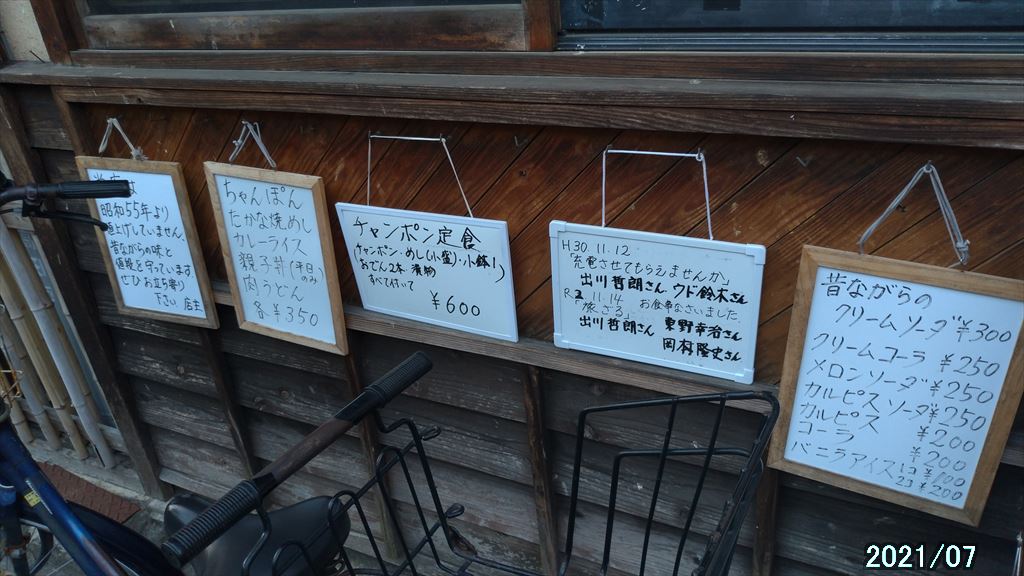 昭和55年より
値上げしていません。
昔ながらの味と
値段を守っています
ぜひお立ち寄り
下さい 店主
ちゃんぽん
たかな焼めし
カレーライス
親子丼(平日のみ
肉うどん
各¥350
チャンポン定食
(チャンポン・めし(小盛)・小鉢1)
おでん2本 漬物
すべて付いて
¥600
H30. 11. 12
「充電させてもらえませんか」
出川哲朗さん ウド鈴木さん
R2 11.14 お食事なさいました
「旅ざる」
出川哲朗さん 東野幸治さん
岡村隆史さん
昔ながらの
クリームソーダ¥300
クリームコーラ ¥250
メロンソーダ ¥250
カルピスソーダ¥250
カルピス ¥200
コーラ ¥200
バニラアイス 1コ ¥100
2コ ¥200
2021/07